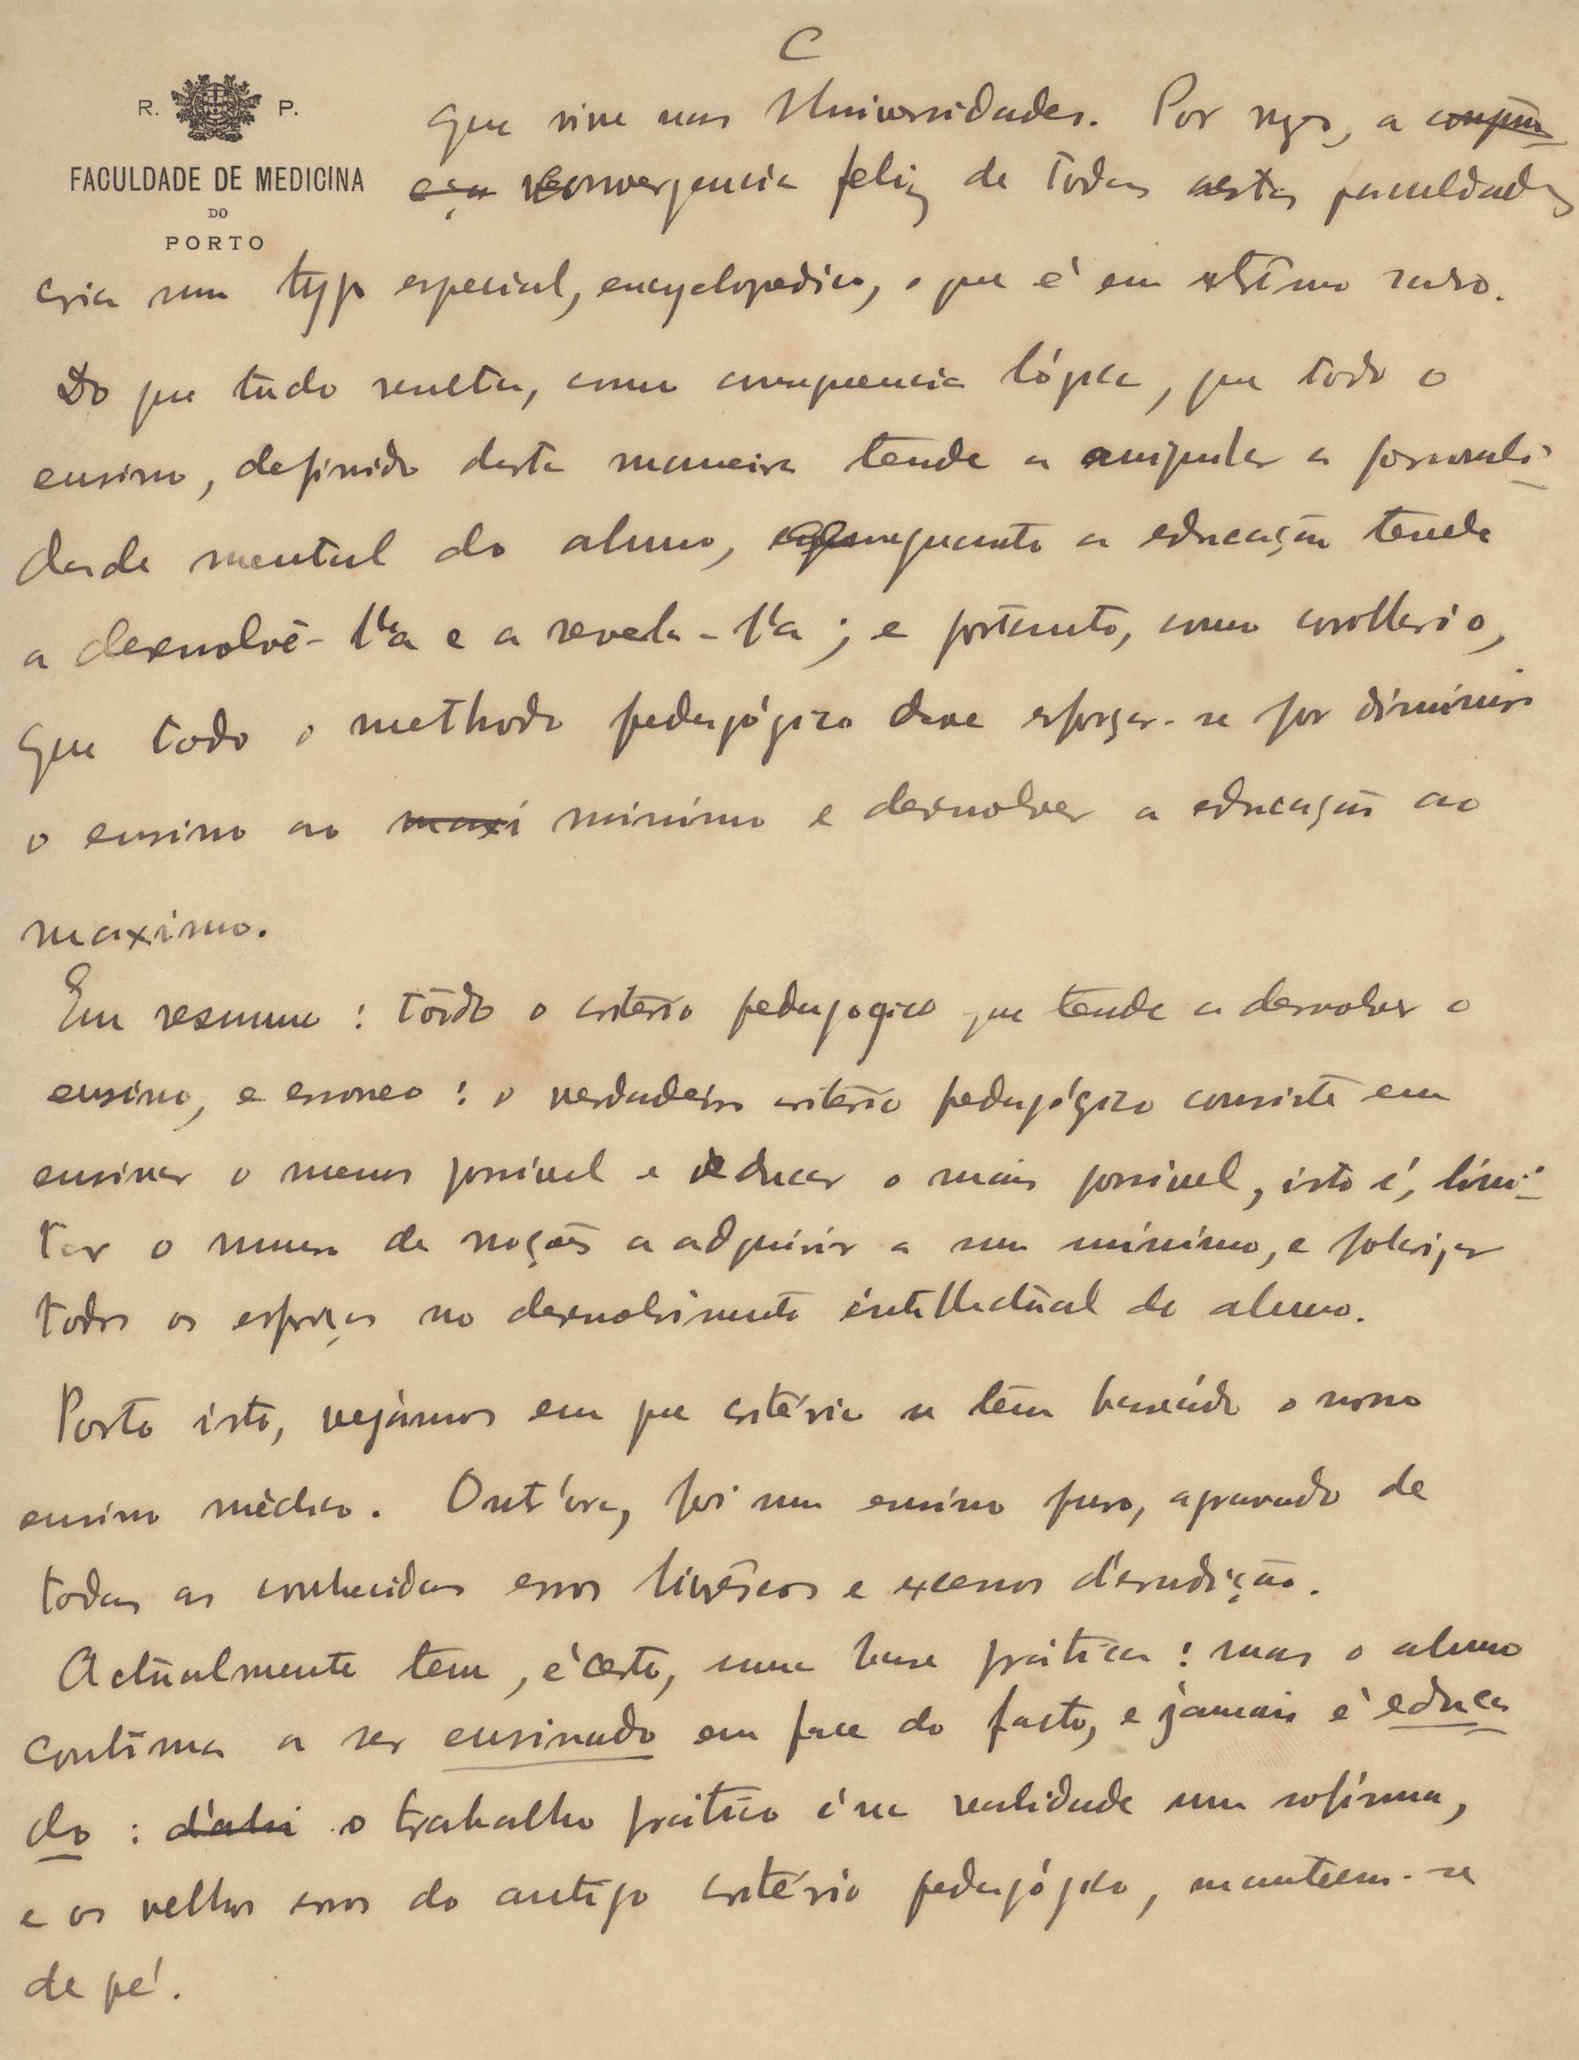 C
R. P.
FACULDADE DE MEDICINA
DO
PORTO
que vive nas Universidades. Por vezes, a
convergencia feliz de todas estas faculdades
cria um typo especial, encyclopedico, o que é em extremo raro.
Do que tudo resulta, como consequencia lógica, que todo o
ensino, definido desta maneira tende a aniquilar a personali-
dade mental do aluno, emquanto a educação tende
a desenvolvê-l'a e a revela-l'a; e portanto, como corollario,
que todo o methodo pedagógico deve esforçar-se por diminuir
o ensino ao maxi minimo e desenvolver a educação ao
maximo.
Em resumo: todo o critério pedagogico que tende a desvolver o
ensino, e erroneo: o verdadeiro critério pedagógico consiste em
ensinar o menos possivel e educar o mais possivel, isto é, limi-
tar o numero de noções a adquirir a um minimo, e
todos os esforços no desenvolvimento intellectual do aluno.
Posto isto, vejâmos em que critério se tem baseádo o nosso
ensino médico. Out'ora, foi um ensino puro, agravado de
todos os conhecidos erros livrêscos e excessos d'erudição.
Actualmente tem, é certo, uma base prática: mas o aluno
continua a ser ensinado em face do facto, e jamais é educa
do: d'ahi o trabalho prático é na realidade um sofisma,
e os velhos erros do antigo critério pedagógico, manteem-se
de pé.